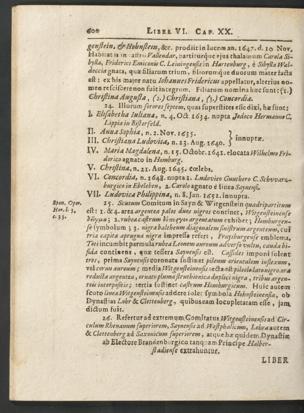 600 LIBER VI. CAP. XX.
genstein, & Hohnstein, &c. prodiit in lucem an. 1647. d. 10 Nov.
Habitat in castro Valendar, partiturque ejus thalamum Carola Si-
bylla, Friderici Emiconis C. Leiningensis in Hartenburg, & Sibylla Wal-
deccia gnata, quæ filiarum trium, filiorumque duorum mater facta
est: ex his major natu Johannes Fridericus appellatur, alterius no-
men rescisse non fuit integrum. Filiarum nomina hæc sunt: (1.)
Christina Augusta, (2.) Christiana, (3.) Concordia.
24. Illarum sorores septem, quas superstites esse dixi, hæ sunt:
I. Elisabetha Juliana, n. 4. Oct. 1634. nupta Jodoco Hermanno C.
Lippio in Bisterfeld.
II. Anna Sophia, n. 2. Nov. 1635.
III. Christiana Ludovica, n. 23. Aug. 1640. } innuptæ.
IV. Maria Magdalena, n. 15. Octobr. 1641. elocata Wilhelmo Fri-
derico agnato in Homburg.
V. Christina, n. 21. Aug. 1645. cœlebs.
VI. Concordia, n. 1648. nupta 1. Ludovico Gunthero C. Schvvarz-
burgico in Ebeleben, 2. Carolo agnato è linea Saynensi.
VII. Ludovica Philippina, n. 8. Jun. 1652. innupta.
Spen. Oper. Her. l. 3. c. 33.
25. Scutum Comitum in Sayn & Wirgenstein quadripartitum
est: 1. & 4. area argentea palos duos nigros continet, Witgensteinense
stegma; 2. rubea castrum bicorne argentatum exhibet; Homburgen-
se symbolum; 3. nigra baltheum diagonalem sinistrum argenteum, cui
tria capita aprugna nigra impressa refert, Freusburgense emblema.
Toti incumbit parmula rubea Leonem aureum adverso vultu, cauda bi-
fida continens, quæ tessera Saynensis est. Cassides imponi solent
tres; prima Saynensis coronata sustinet pileum orientalem inflexum,
vel cornu aureum; tertia Homburgicum castrum. Huic autem
scuto linea Witgensteinensis addere solet symbola Hohnsteinensia, ob
Dynastias Lohr & Clettenberg, quibusnam locupletatam esse, jam,
dictum fuit.
26. Refertur ad extremum Comitatus Witgensteinensis ad Cir-
culum Rhenanum superiorem, Saynensis ad Westphalicum, Lohra autem
& Clettenberg ad Saxonicum superiorem, atque hæ quidem Dynastiæ
ab Electore Brandenburgico tanquam Principe Halber-
stadiensi extrahuntur.
LIBER